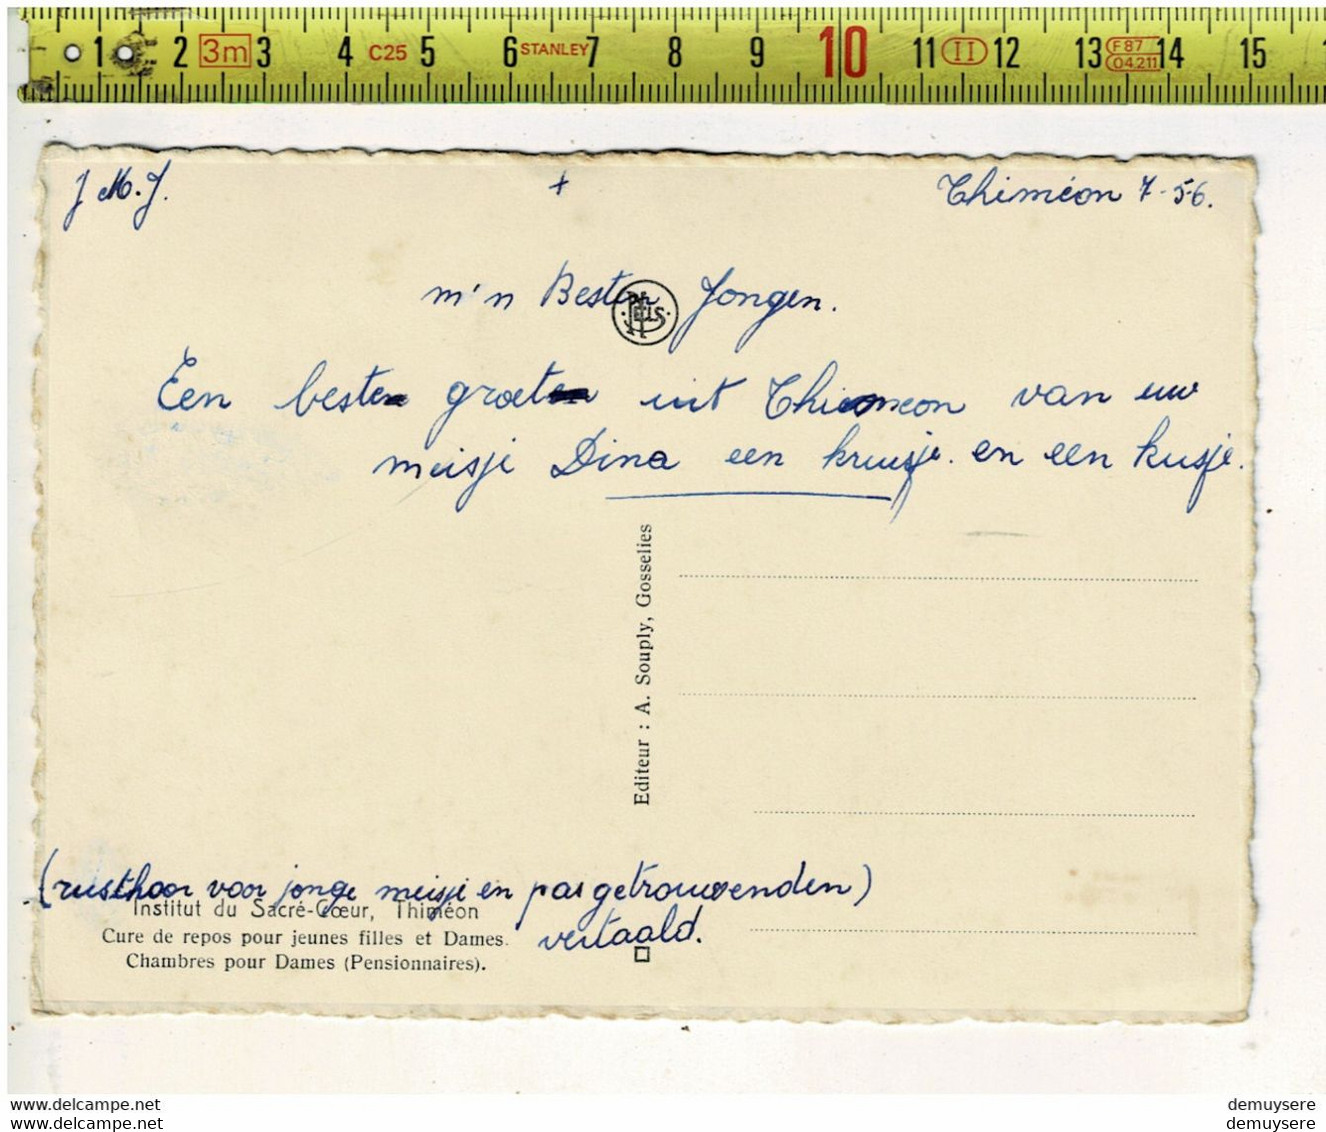 1 2 3m 3 4 C25 5 6 STANLEY 7 8 9 10 11 II 12 13 F87 04.211 14 15
J M. J. + Thiméon 7-56.
m'n Besten Jongen.
NELS
Een beste groet uit Thimeon van uw
meisje Dina een kruisje. en een kusje.
Editeur : A. Souply, Gosselies
(rusthoor voor jonge meisje en pas getrouwenden)
vertaald.
Institut du Sacré-Cœur, Thiméon
Cure de repos pour jeunes filles et Dames.
Chambres pour Dames (Pensionnaires).
demuysere
demuysere